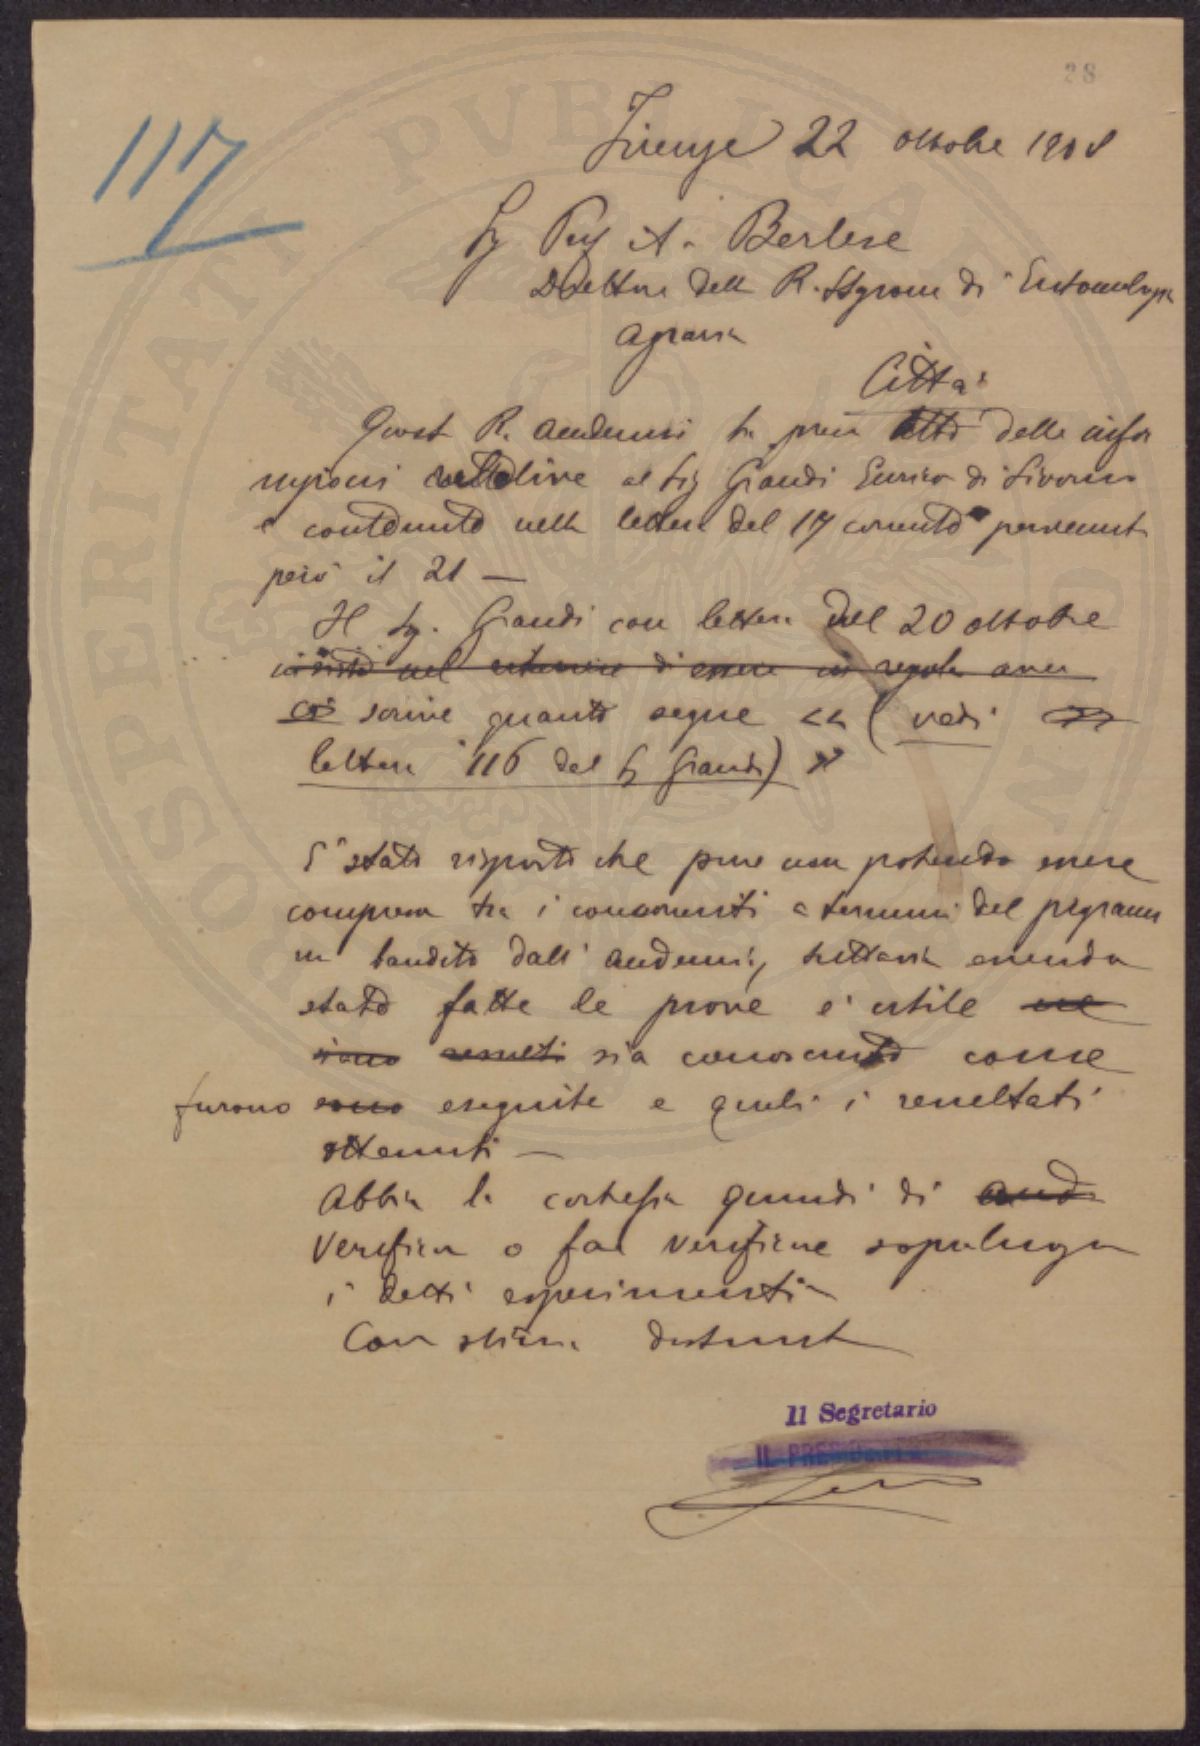 28
117
Firenze 22 ottobre 1908
Sg Prof A. Berlese
Direttore della R. Stazione di Entomologia
Agraria
Città
Questa R. Accademia ha preso atto delle infor
mazioni relative al Sig Grandi Enrico di Livorno
e contenute nella lettera del 17 corrente pervenuta
però il 21 —
Il Sg. Grandi con lettera del 20 ottobre
nel ritenere di essere in regola
così scrive quanto segue << (vedi
lettera 116 del Sg Grandi) >>
E' stato risposto che pure non potendo essere
compreso tra i concorrenti a termini del program
ma bandito dall'Accademia, tuttavia essendo
state fatte le prove è utile ne
siano sia conosciuto come
furono sono eseguite e quali i resultati
ottenuti —
Abbia la cortesia quindi di
verificare o far verificare sopraluogo
i detti esperimenti
Con stima distinta
Il Segretario
IL PRESIDENTE
PROSPERITATI PVBLICAE